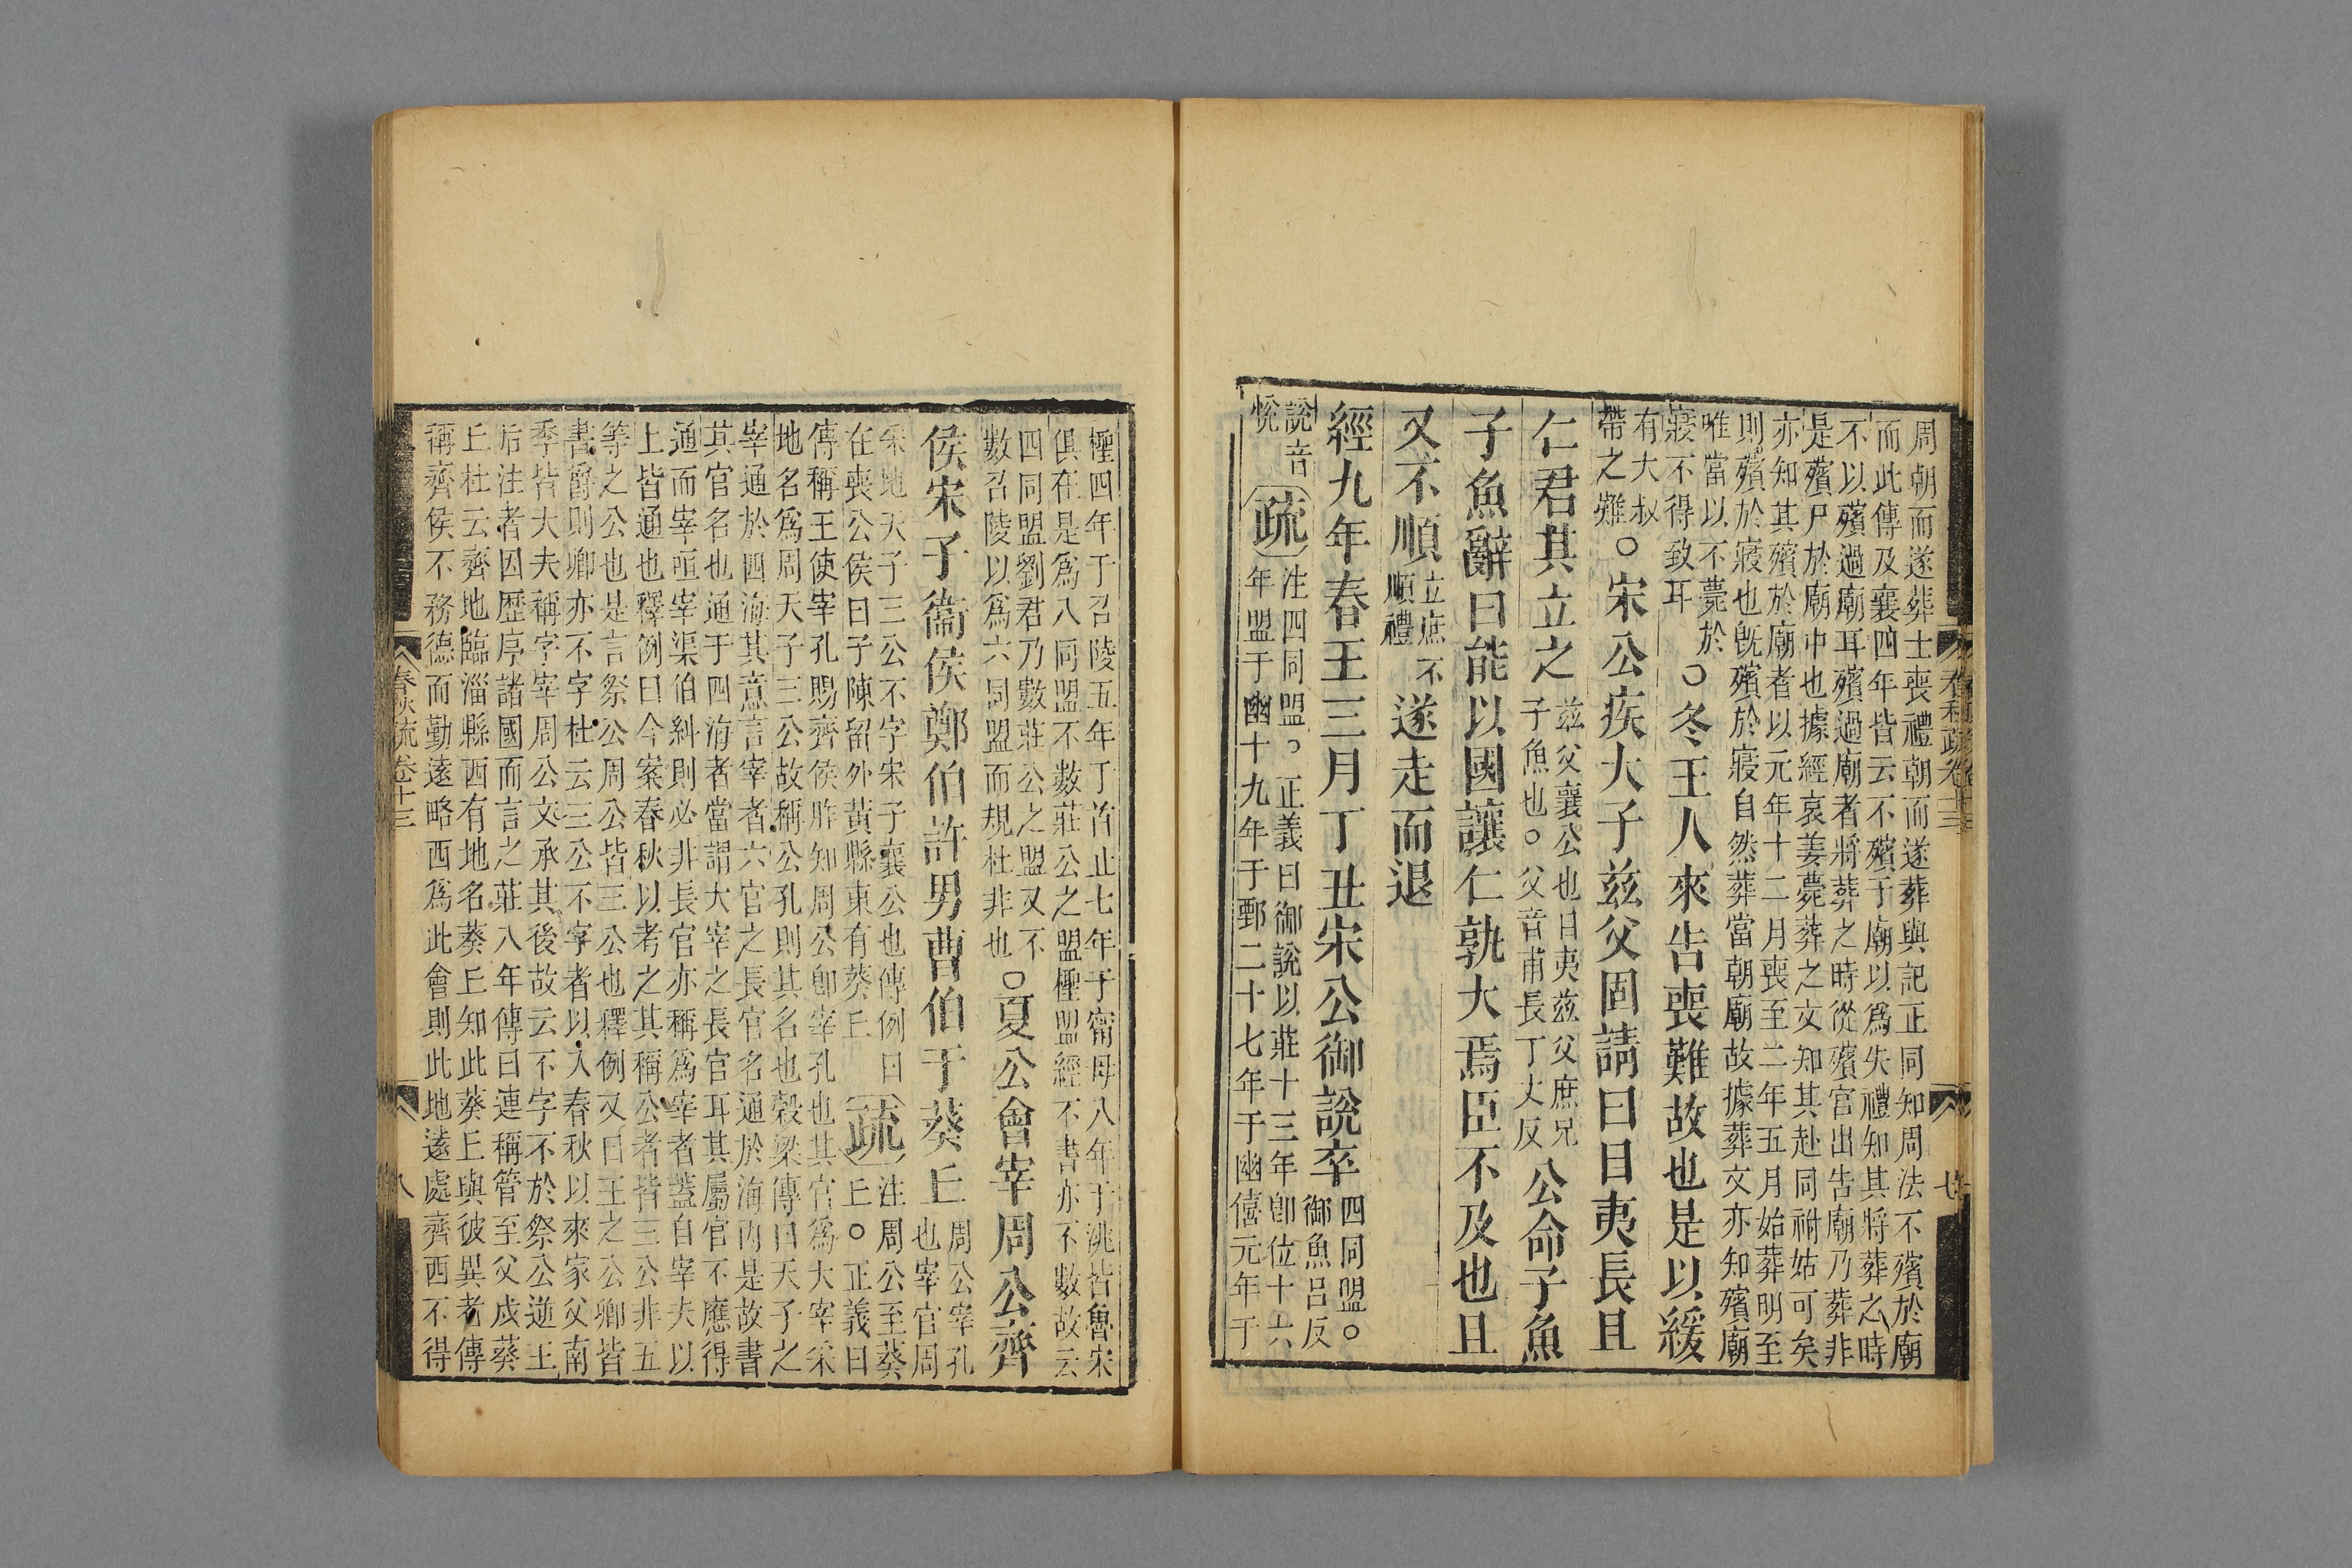 春秋疏卷十三 七
周朝而遂葬士喪禮朝而遂葬與記正同知周法不殯於廟
而此傳及襄四年皆云不殯于廟以爲失禮知其將葬之時
不以殯過廟耳殯過廟者將葬之時從殯宮出告廟乃葬非
是殯尸於廟中也據經哀姜薨葬之文知其赴同祔姑可矣
亦知其殯於廟者以元年十二月喪至二年五月始葬明至
則殯於寢也旣殯於寢自然葬當朝廟故據葬文亦知殯廟
唯當以不薨於
寢不得致耳
○冬王人來告喪難故也是以緩
有大叔
帶之難
○宋公疾大子茲父固請曰目夷長且
仁君其立之
茲父襄公也目夷茲父庶兄
子魚也○父音甫長丁丈反
公命子魚
子魚辭曰能以國讓仁孰大焉臣不及也且
又不順
立庶不
順禮
遂走而退
經九年春王三月丁丑宋公御說卒
四同盟○
御魚呂反
說音
悅
疏
注四同盟○正義曰御說以莊十三年卽位十六
年盟于幽十九年于鄄二十七年于幽僖元年于
檉四年于召陵五年于首止七年于甯母八年于洮皆魯宋
俱在是爲八同盟不數莊公之盟檉盟經不書亦不數故云
四同盟劉君乃數莊公之盟又不
數召陵以爲六同盟而規杜非也
○夏公會宰周公齊
侯宋子衞侯鄭伯許男曹伯于葵丘
周公宰孔
也宰官周
采地天子三公不字宋子襄公也傳例曰
在喪公侯曰子陳留外黃縣東有葵丘
疏
注周公至葵
丘○正義曰
傳稱王使宰孔賜齊侯胙知周公卽宰孔也其官爲大宰采
地名爲周天子三公故稱公孔則其名也穀梁傳曰天子之
宰通於四海其意言宰者六官之長官名通於海內是故書
其官名也通于四海者當謂大宰之長官耳其屬官不應得
通而宰咺宰渠伯糾則必非長官亦稱爲宰者蓋自宰夫以
上皆通也釋例曰今案春秋以考之其稱公者皆三公非五
等之公也是言祭公周公皆三公也釋例又曰王之公卿皆
書爵則卿亦不字杜云三公不字者以入春秋以來家父南
季皆大夫稱字宰周公文承其後故云不字不於祭公逆王
后注者因歷序諸國而言之莊八年傳曰連稱管至父戍葵
丘杜云齊地臨淄縣西有地名葵丘知此葵丘與彼異者傳
稱齊侯不務德而勤遠略西爲此會則此地遠處齊西不得
春秋疏卷十三 八